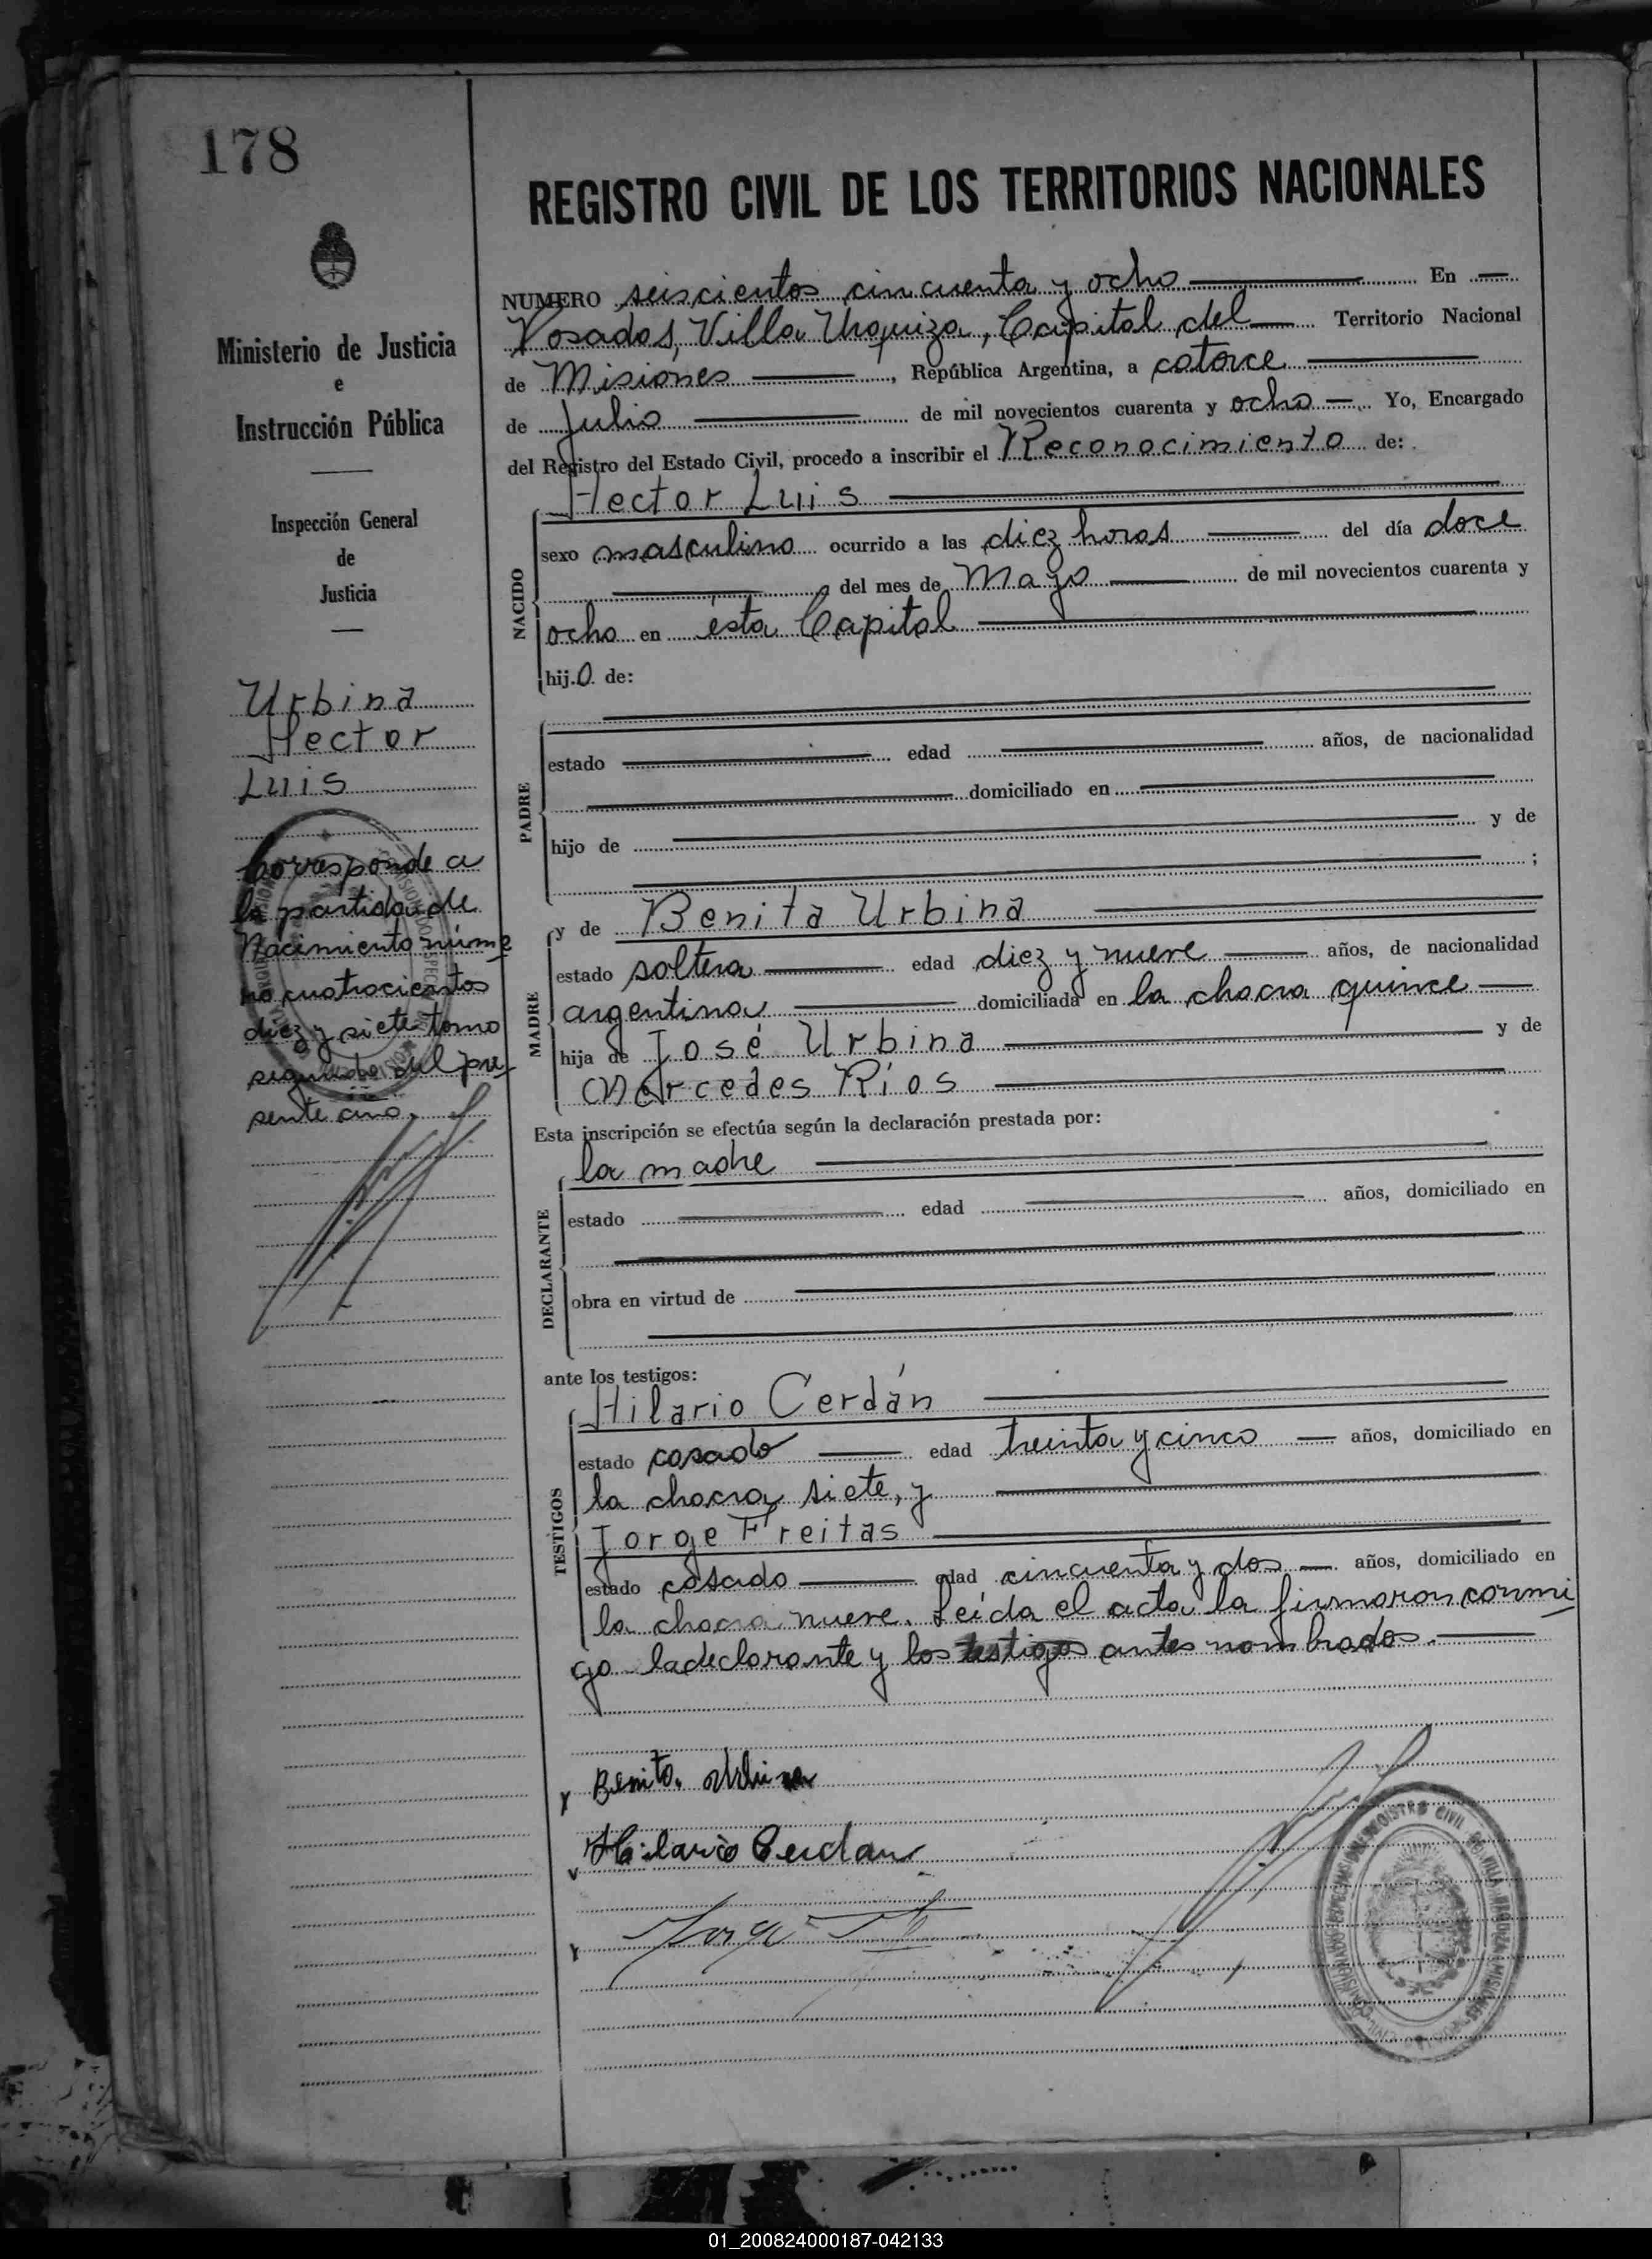 178
REGISTRO CIVIL DE LOS TERRITORIOS NACIONALES
Ministerio de Justicia
e
Instrucción Pública
Inspección General
de
Justicia
Urbina
Hector
Luis
Corresponde a
la partida de
Nacimiento núme
ro cuatrocientos
diez y siete tomo
segundo del pre
sente año.
NUMERO seiscientos cincuenta y ocho En
Posadas, Villa Urquiza, Capital del Territorio Nacional
de Misiones, República Argentina, a catorce
de Julio de mil novecientos cuarenta y ocho Yo, Encargado
del Registro del Estado Civil, procedo a inscribir el Reconocimiento de:
Hector Luis
NACIDO
sexo masculino ocurrido a las diez horas del día doce
del mes de Mayo de mil novecientos cuarenta y
ocho en ésta Capital
hijo de:
PADRE
estado edad años, de nacionalidad
domiciliado en
hijo de y de
;
y de Benita Urbina
MADRE
estado soltera edad diez y nueve años, de nacionalidad
argentina domiciliada en la chacra quince
hija de José Urbina y de
Mercedes Ríos
Esta inscripción se efectúa según la declaración prestada por:
la madre
DECLARANTE
estado edad años, domiciliado en
obra en virtud de
ante los testigos:
Hilario Cerdán
TESTIGOS
estado casado edad treinta y cinco años, domiciliado en
la chacra siete, y
Jorge Freitas
estado casado edad cincuenta y dos años, domiciliado en
la chacra nueve. Leída el acta la firmaron conmi
go la declarante y los testigos antes nombrados.
Benita Urbina
Hilario Cerdan
Jorge
01_200824000187-042133